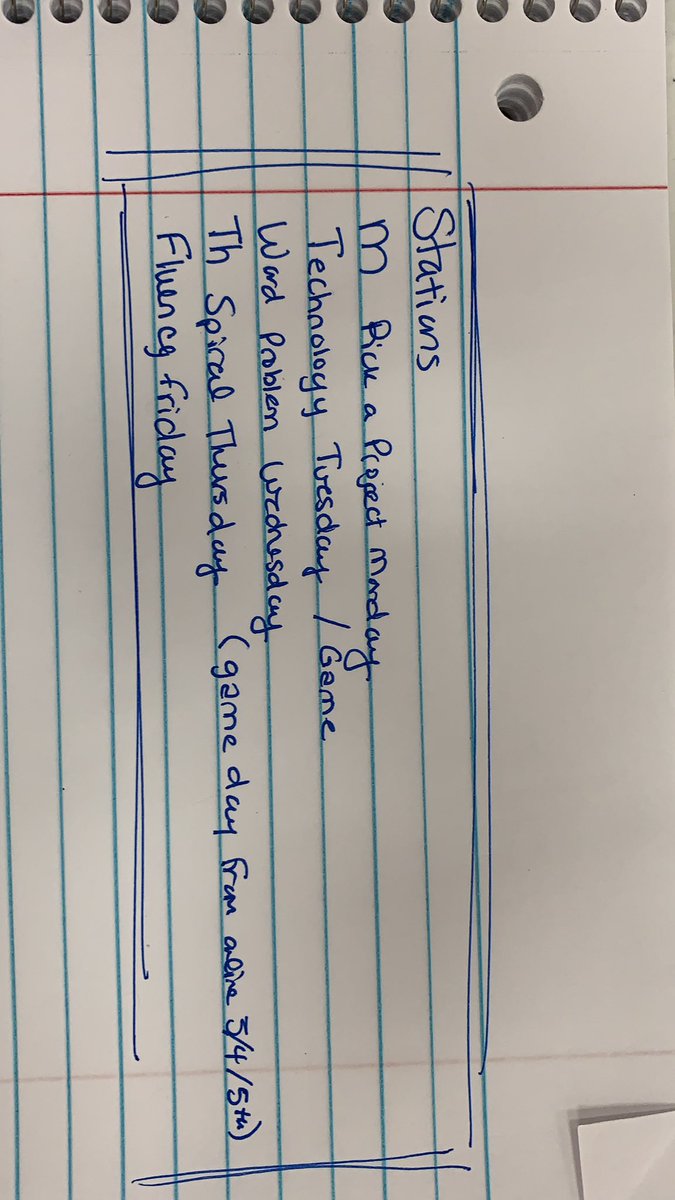 Stations
M Pick a Project Monday
Technology Tuesday / Game
Word Problem Wednesday
Th Spiral Thursday (game day from online 3/4/5th)
Fluency friday